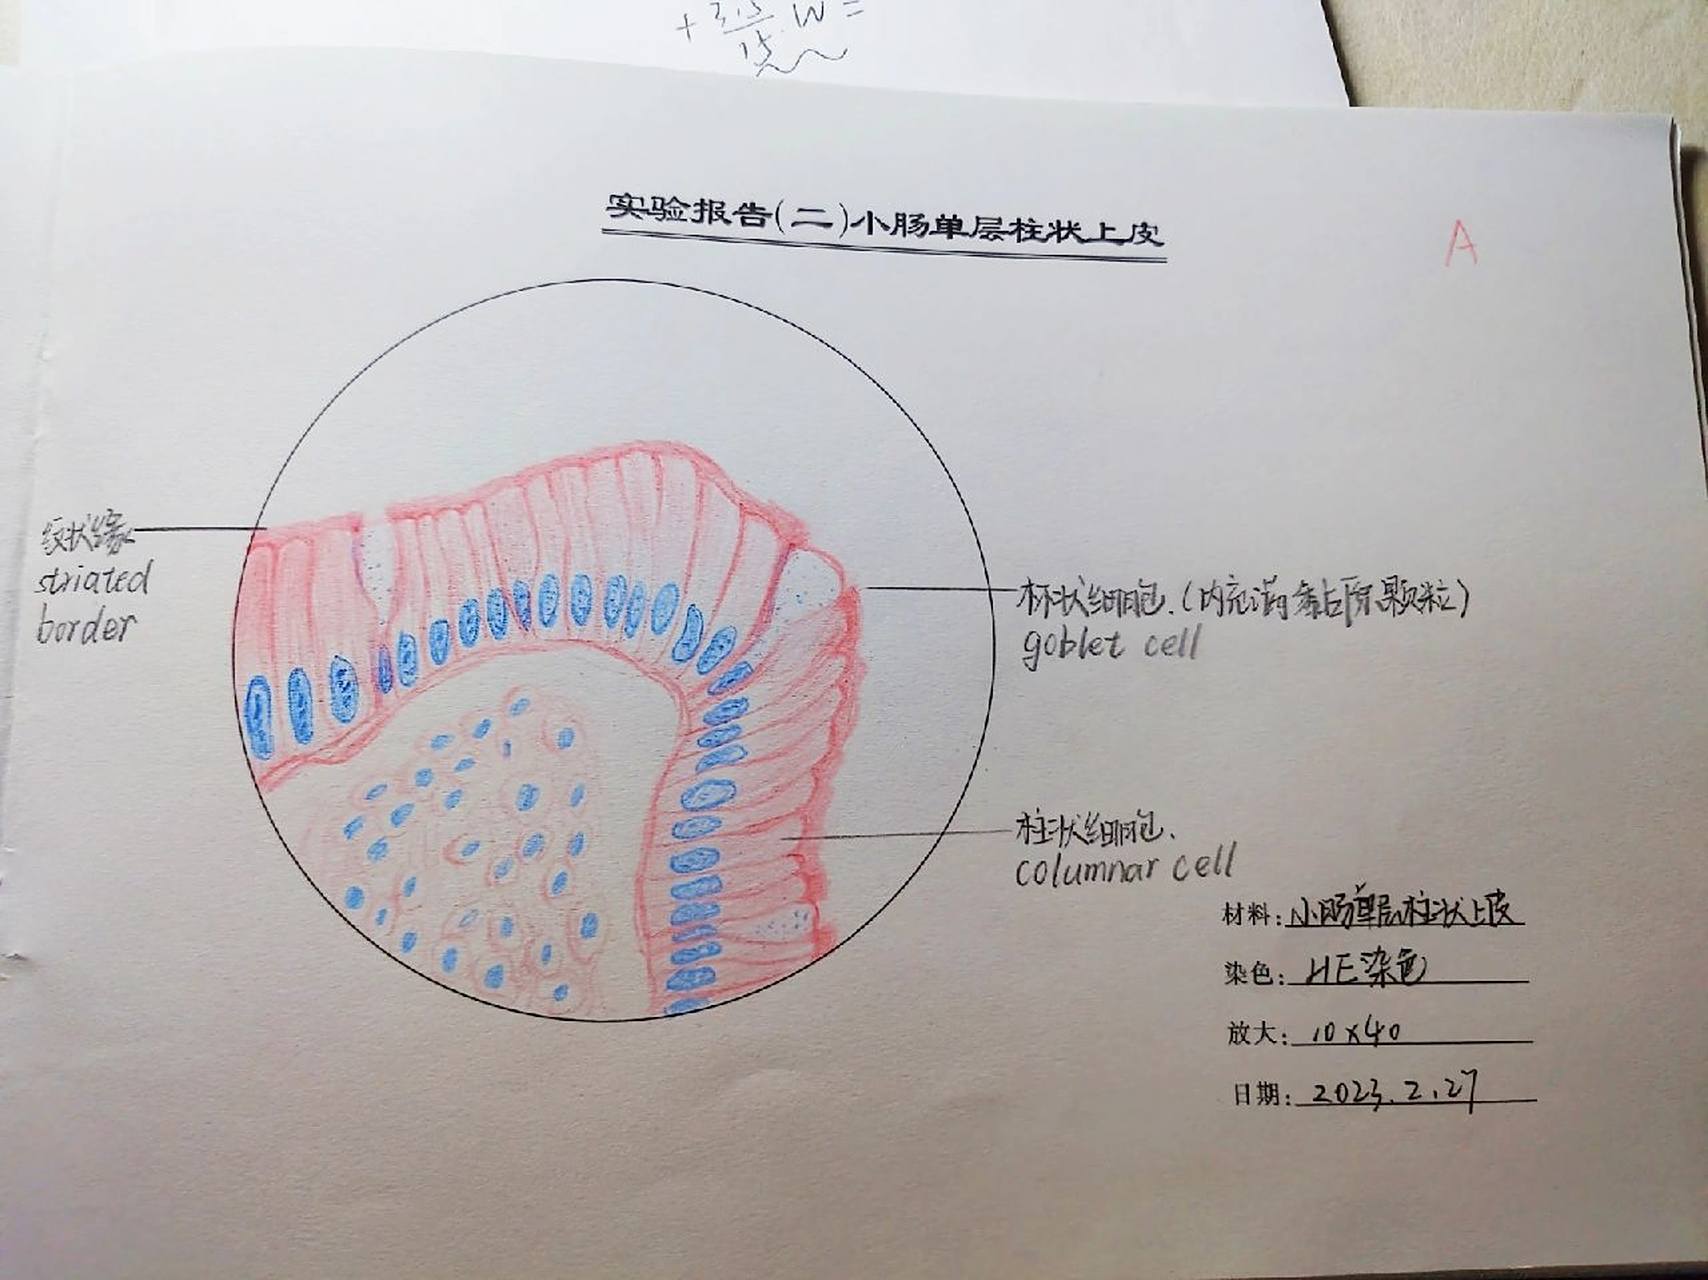 实验报告(二)小肠单层柱状上皮
A
纹状缘
striated
border
杯状细胞.(内充满黏原颗粒)
goblet cell
柱状细胞.
columnar cell
材料:小肠单层柱状上皮
染色:HE染色
放大:10×40
日期:2023.2.27